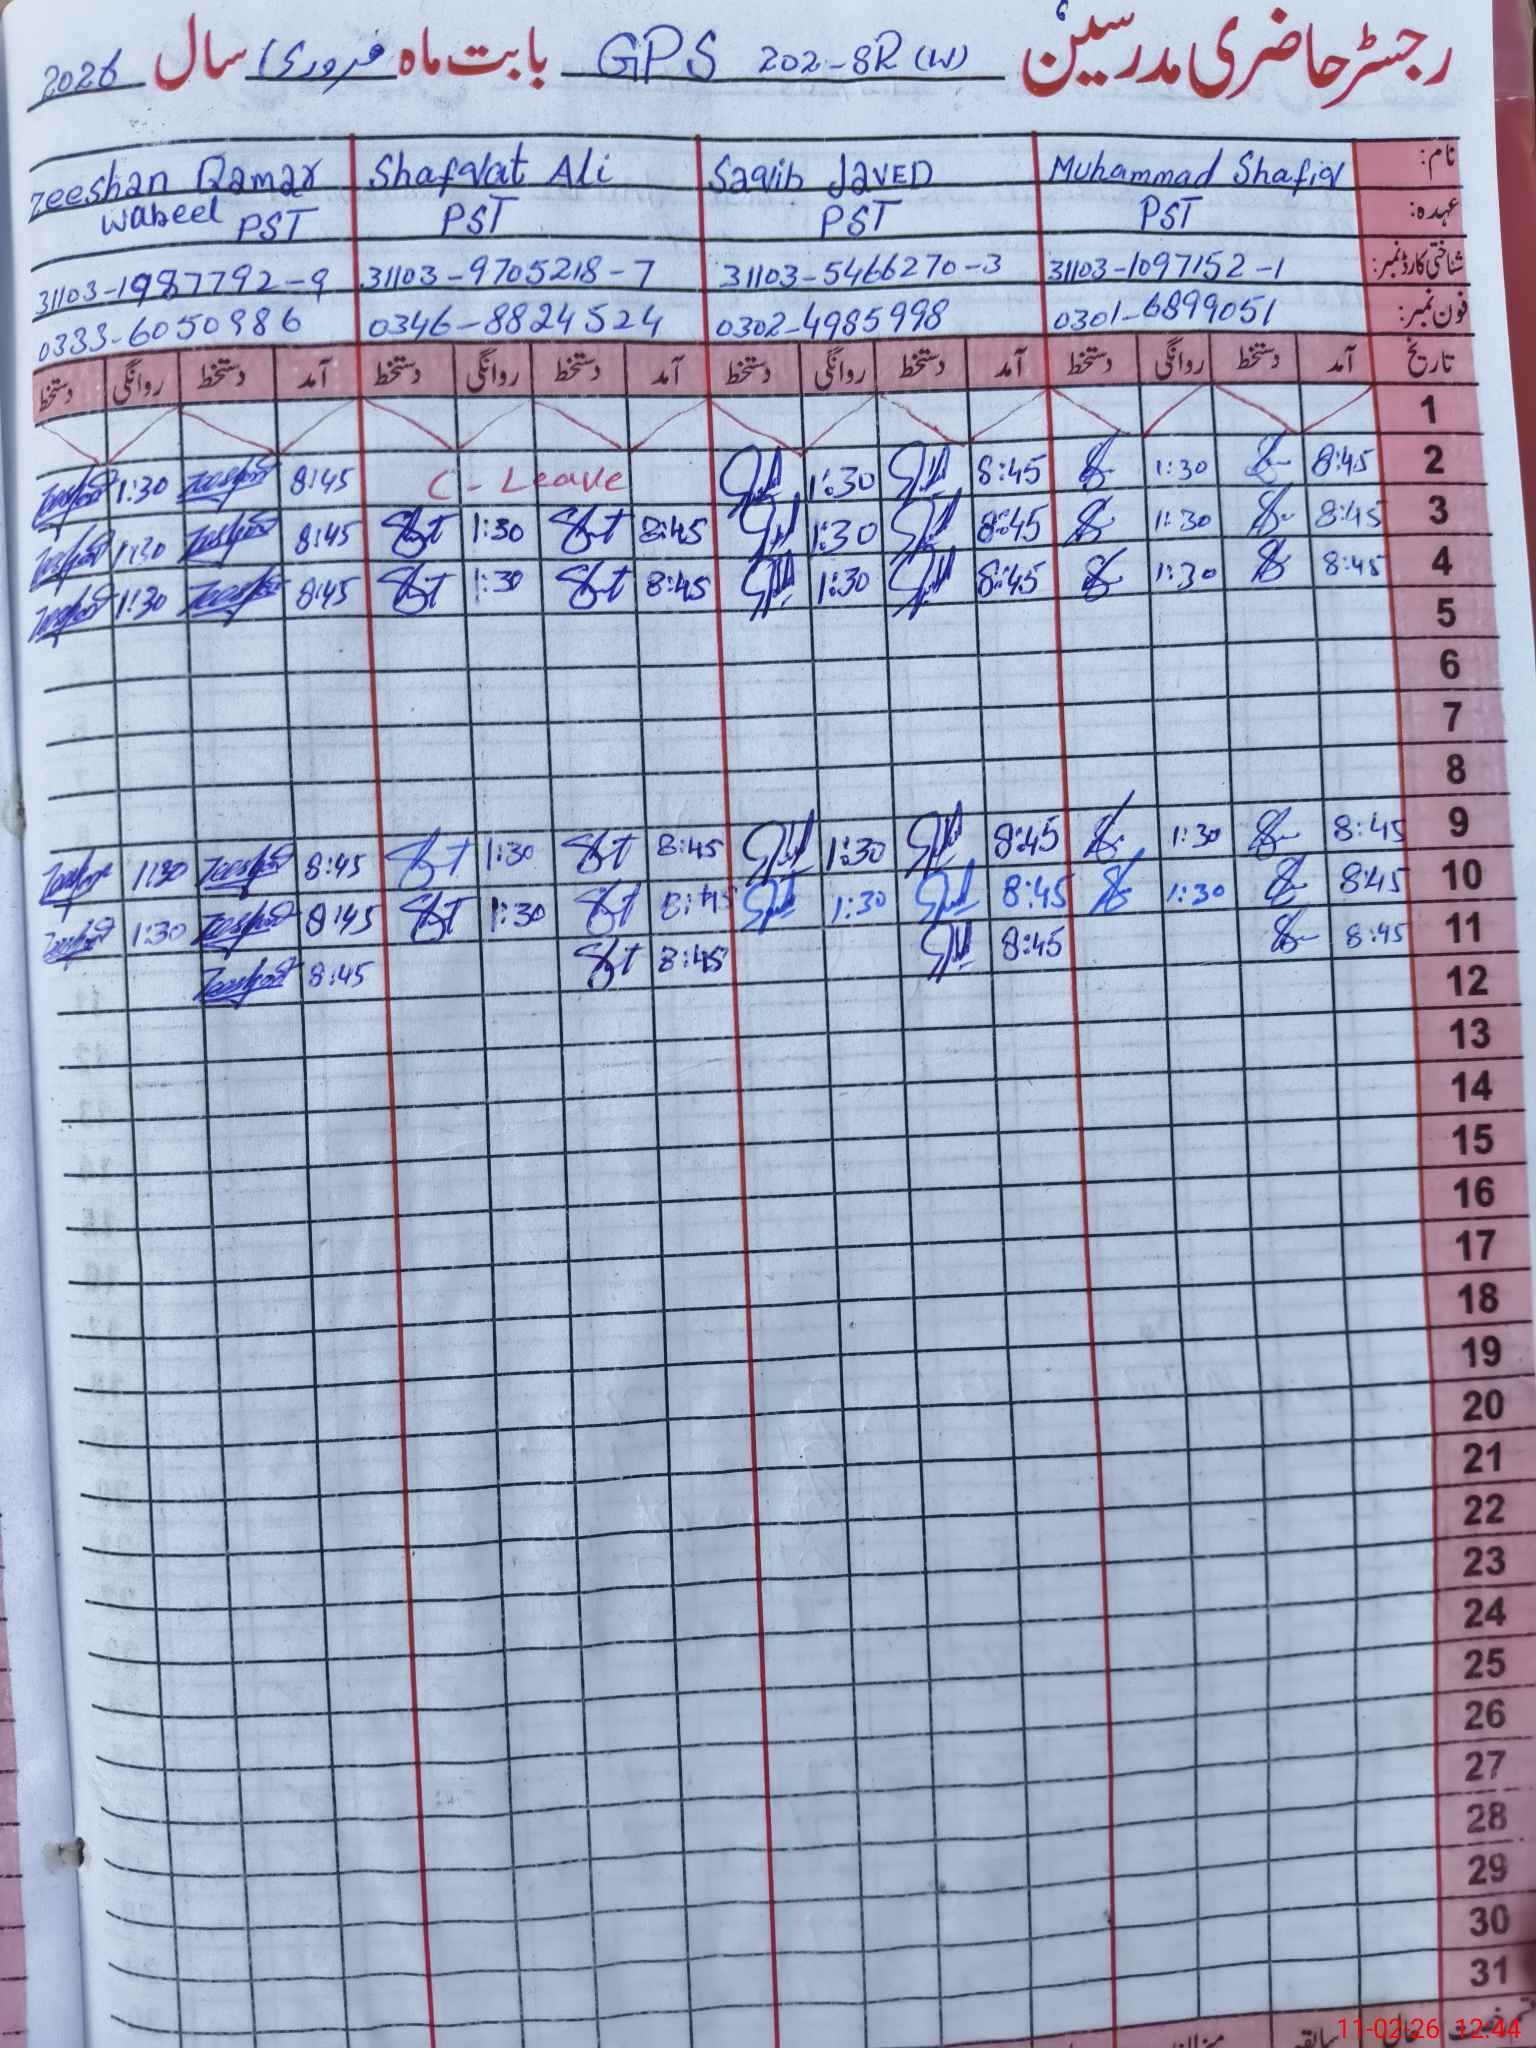 رجسٹر حاضری مدرسین GPS 202-8R (W) بابت ماہ فروری سال 2026
نام: Muhammad Shafiq Saqib JAVED Shafqat Ali Zeeshan Qamar
عہدہ: PST PST PST Wabeel PST
شناختی کارڈ نمبر: 31103-1097152-1 31103-5466270-3 31103-9705218-7 31103-1987792-9
فون نمبر: 0301-6899051 0302-4985998 0346-8824524 0333-6050986
تاریخ آمد دستخط روانگی دستخط آمد دستخط روانگی دستخط آمد دستخط روانگی دستخط آمد دستخط روانگی دستخط
1
2 8:45 1:30 8:45 1:30 C - Leave 8:45 1:30
3 8:45 1:30 8:45 1:30 8:45 1:30 8:45 1:30
4 8:45 1:30 8:45 1:30 8:45 1:30 8:45 1:30
5
6
7
8
9 8:45 1:30 8:45 1:30 8:45 1:30 8:45 1:30
10 8:45 1:30 8:45 1:30 8:45 1:30 8:45 1:30
11 8:45 8:45 8:45 8:45
12
13
14
15
16
17
18
19
20
21
22
23
24
25
26
27
28
29
30
31
11-02-26 12:44